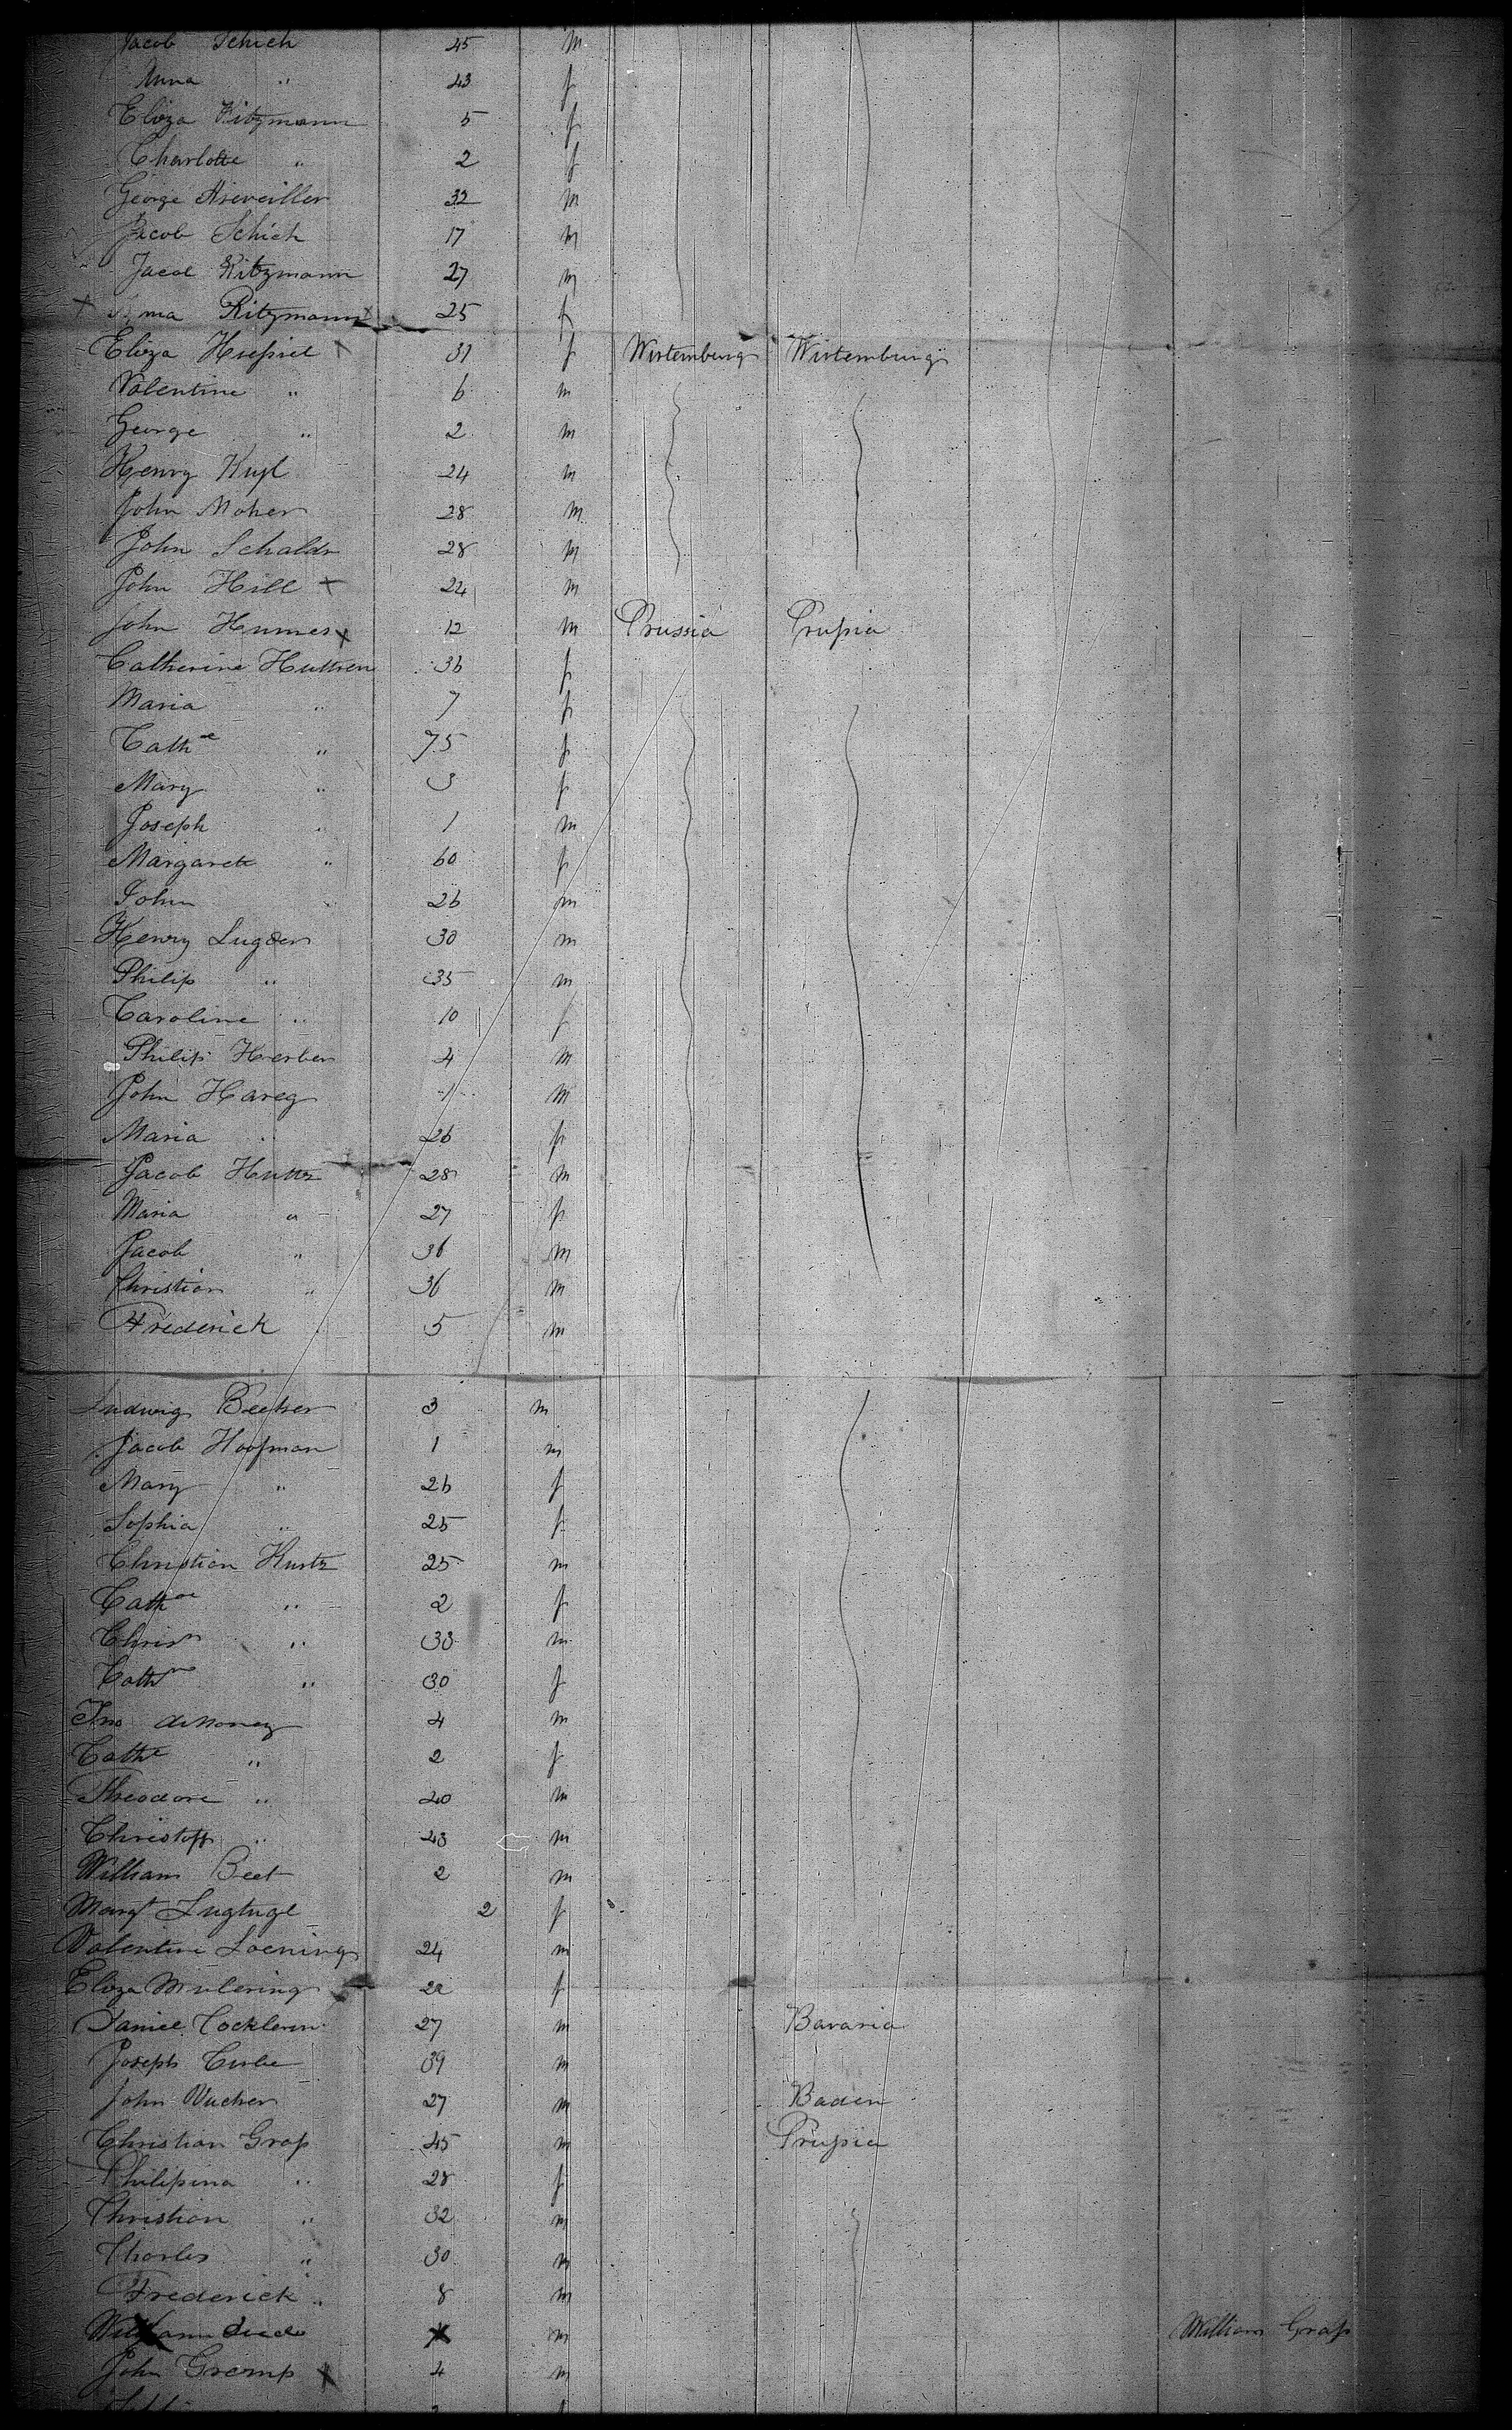 Jacob Schich 45 m
Anna " 43 f
Eliza Ritzmann 5 f
Charlotte " 2 f
George 32 m
Jacob Schich 17 m
Jacob Ritzmann 27 m
Ritzmann 25 f
Eliza 31 f Wirtemburg Wirtemburg
Valentine " 6 m
George " 2 m
Henry 24 m
John Moher 28 m
John Schaldr 28 m
John Hill x 22 m
John Humes x 12 m Prussia Prussia
Catherine Huttren 36 f
Maria " 7 f
Cathe " 75 f
Mary " 3 f
Joseph " 1 m
Margareth " 60 f
John " 26 m
Henry Lugder 30 m
Philip " 35 m
Caroline " 10 f
Philip Herber 4 m
John Hareg 1 m
Maria " 26 f
Jacob Huttr 28 m
Maria " 27 f
Jacob " 36 m
Christian " 36 m
Frederick 5 m
Ludwig Becker 3 m
Jacob Hoofman 1 m
Mary " 26 f
Sophia " 25 f
Christian Kurtz 25 m
Cathne " 2 f
Christn " 33 m
Cathne " 30 f
Jno 4 m
Cathe " 2 f
Theodore " 20 m
Christoff " 23 m
William Beet 2 m
Margt Lugtugl 2 f
Valentine Loening 24 m
Eliza Mulering 22 f
Daniel Cockleren 27 m Bavaria
Joseph Curbe 39 m
John Wucher 27 m Baden
Christian Grass 45 m Prussia
Philipina " 28 f
Christian " 32 m
Charles " 30 m
Frederick " 8 m
William died m William Grass
John Gremp x 4 m